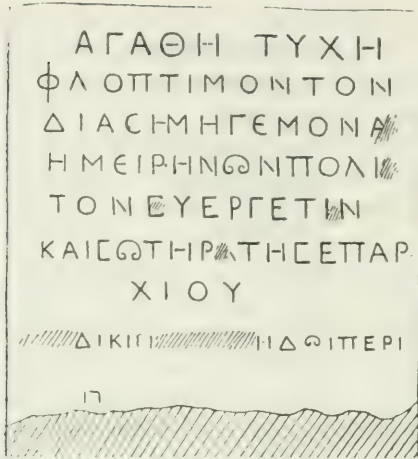 ΑΓΑΘΗ ΤΥΧΗ
ΦΛΟΠΤΙΜΟΝΤΟΝ
ΔΙΑϹΗΜΗΓΕΜΟΝΑ
ΗΜΕΙΡΗΝΩΝΠΟΛΙ
ΤΟΝΕΥΕΡΓΕΤΙΝ
ΚΑΙϹΩΤΗΡΑΤΗϹΕΠΑΡ
ΧΙΟΥ
ΔΙΚΙ ΔΩΙΠΕΡΙ